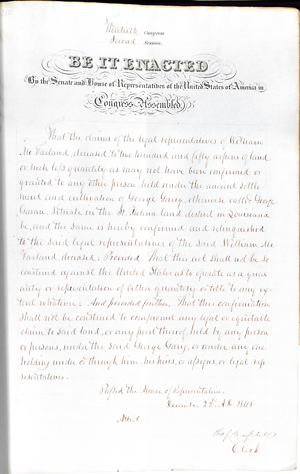 Thirtieth Congress
Second Session.
BE IT ENACTED
By the Senate and House of Representatives of the United States of America in
Congress Assembled
That the claims of the legal representatives of William
Mc Farland, deceased to two hundred and fifty arpens of land
or such less quantity as may not have been confirmed or
granted to any other person, held under the ancient settle-
ment and cultivation of George Gary, otherwise called George
situate in the St. Helena land district in Louisiana
be, and the same is hereby confirmed and relinquished
to the said legal representatives of the said William Mc
Farland, deceased. Provided, That this act shall not be so
construed against the United States as to operate as a guar-
anty or representation of either quantity or title to any ex-
tent whatever. And provided further, That this confirmation
shall not be construed to compromit any legal or equitable
claim to said land, or any part thereof, held by any person
or persons, under the said George Gary, or under any one
holding under or through him, his heirs, or assigns, or legal rep-
resentatives.
Passed the House of Representatives
A.D. 1848
Attest
Clerk